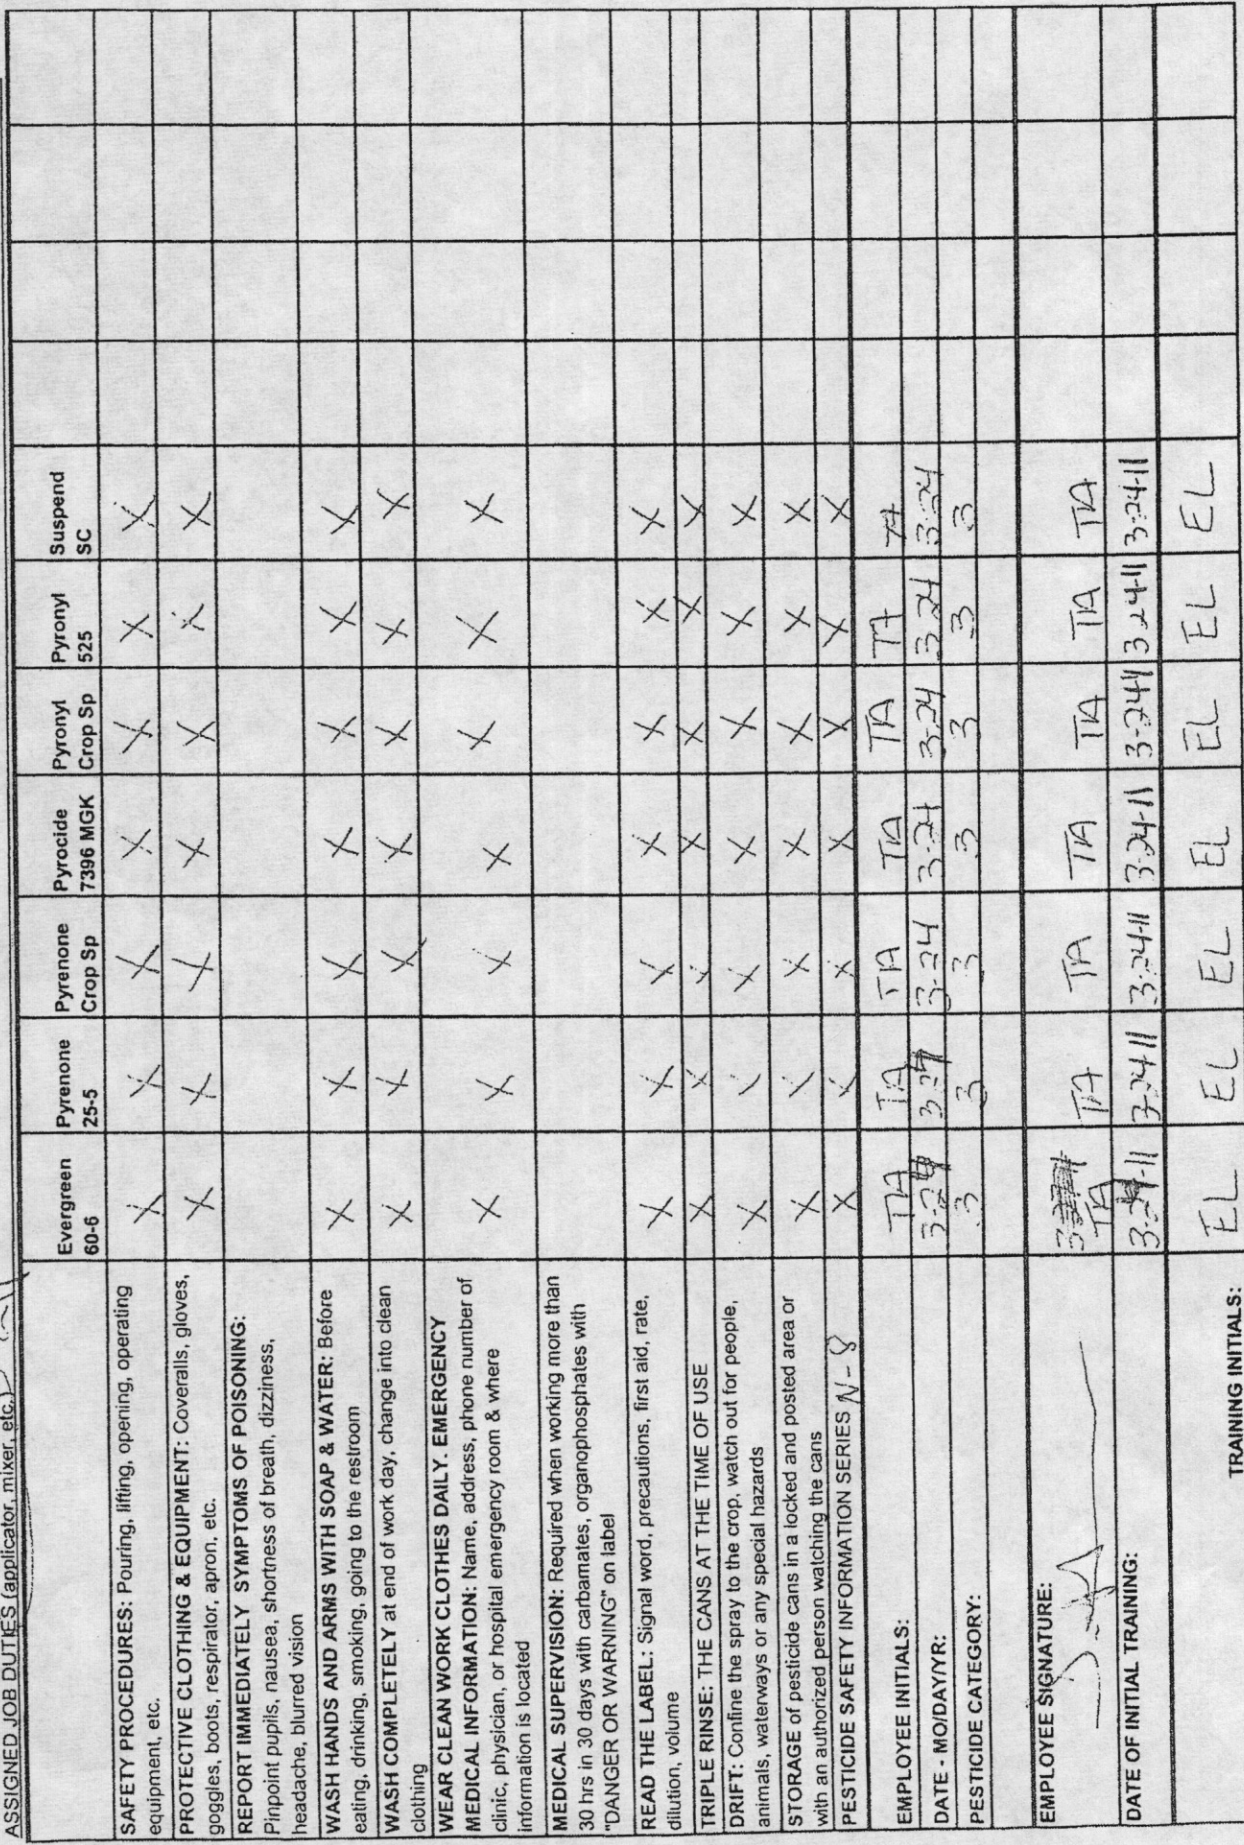 ASSIGNED JOB DUTIES (applicator, mixer, etc.)
Evergreen 60-6 Pyrenone 25-5 Pyrenone Crop Sp Pyrocide 7396 MGK Pyronyl Crop Sp Pyronyl 525 Suspend SC
SAFETY PROCEDURES: Pouring, lifting, opening, operating X X X X X X X
equipment, etc.
PROTECTIVE CLOTHING & EQUIPMENT: Coveralls, gloves, X X X X X X X
goggles, boots, respirator, apron, etc.
REPORT IMMEDIATELY SYMPTOMS OF POISONING:
Pinpoint pupils, nausea, shortness of breath, dizziness,
headache, blurred vision
WASH HANDS AND ARMS WITH SOAP & WATER: Before X X X X X X X
eating, drinking, smoking, going to the restroom
WASH COMPLETELY at end of work day, change into clean X X X X X X X
clothing
WEAR CLEAN WORK CLOTHES DAILY. EMERGENCY
MEDICAL INFORMATION: Name, address, phone number of X X X X X X X
clinic, physician, or hospital emergency room & where
information is located
MEDICAL SUPERVISION: Required when working more than
30 hrs in 30 days with carbamates, organophosphates with
"DANGER OR WARNING" on label
READ THE LABEL: Signal word, precautions, first aid, rate, X X X X X X X
dilution, volume
TRIPLE RINSE: THE CANS AT THE TIME OF USE X X X X X X X
DRIFT: Confine the spray to the crop, watch out for people, X X X X X X X
animals, waterways or any special hazards
STORAGE of pesticide cans in a locked and posted area or X X X X X X X
with an authorized person watching the cans
PESTICIDE SAFETY INFORMATION SERIES N-8 X X X X X X X
EMPLOYEE INITIALS: TA TA TA TA TA TA TA
DATE - MO/DAY/YR: 3-24 3-24 3-24 3-24 3-24 3-24 3-24
PESTICIDE CATEGORY: 3 3 3 3 3 3 3
EMPLOYEE SIGNATURE: TA TA TA TA TA TA TA
DATE OF INITIAL TRAINING: 3-24-11 3-24-11 3-24-11 3-24-11 3-24-11 3-24-11 3-24-11
TRAINING INITIALS: EL EL EL EL EL EL EL